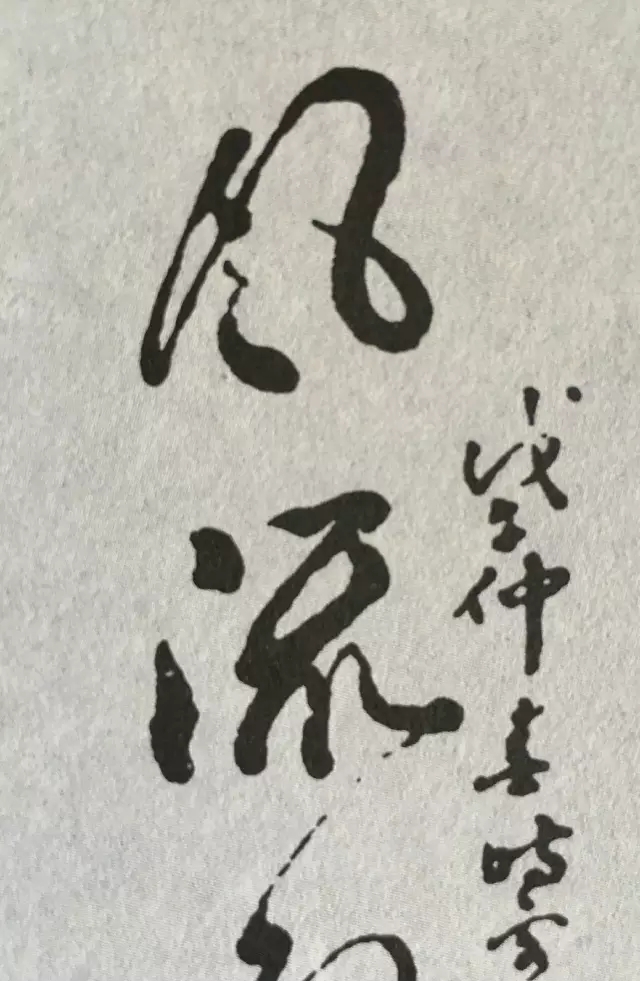 風流
戊子仲春時